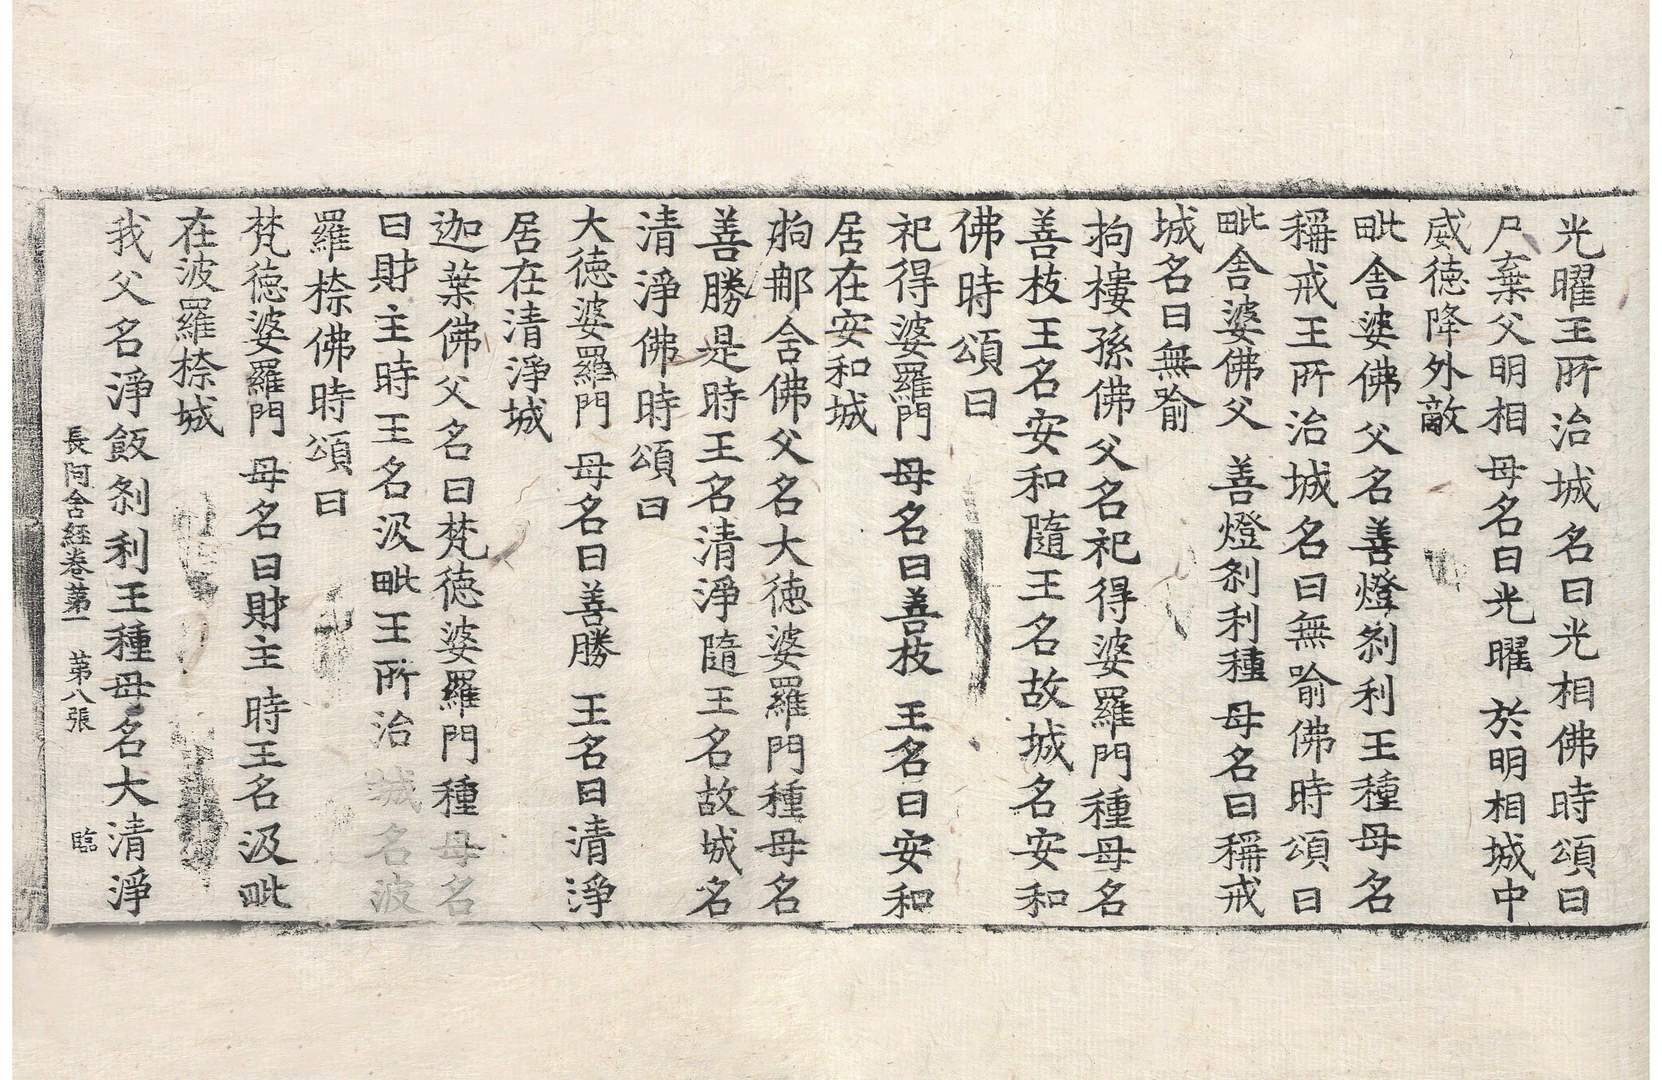 光曜王所治城名曰光相佛時頌曰
尸棄父明相 母名曰光曜 於明相城中
威德降外敵
毗舍婆佛父名善燈刹利王種母名
稱戒王所治城名曰無喻佛時頌曰
毗舍婆佛父 善燈刹利種 母名曰稱戒
城名曰無喻
拘樓孫佛父名祀得婆羅門種母名
善枝王名安和隨王名故城名安和
佛時頌曰
祀得婆羅門 母名曰善枝 王名曰安和
居在安和城
拘那舍佛父名大德婆羅門種母名
善勝是時王名清淨隨王名故城名
清淨佛時頌曰
大德婆羅門 母名曰善勝 王名曰清淨
居在清淨城
迦葉佛父名曰梵德婆羅門種母名
曰財主時王名汲毗王所治城名波
羅㮈佛時頌曰
梵德婆羅門 母名曰財主 時王名汲毗
在波羅㮈城
我父名淨飯刹利王種母名大清淨
長阿含經卷第一 第八張 臨